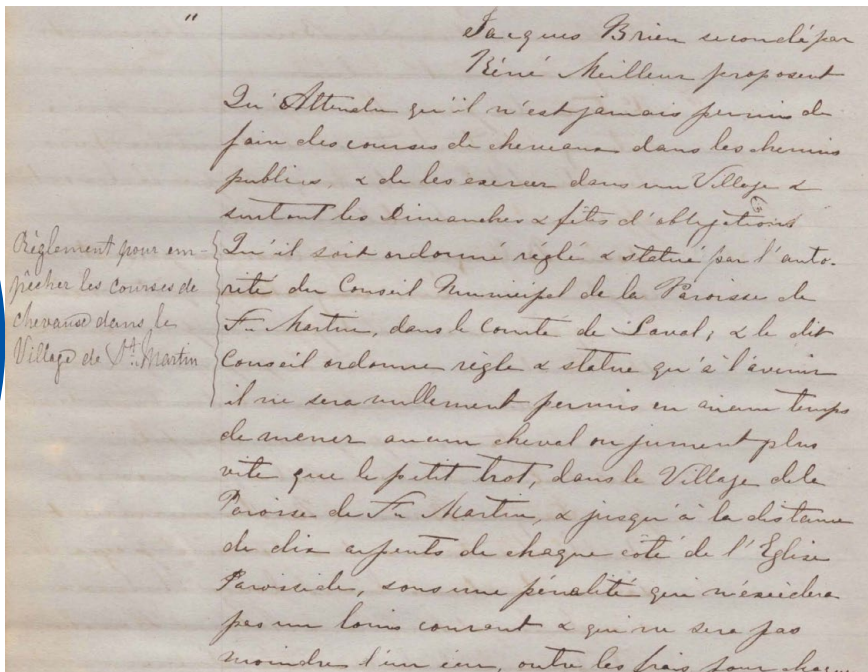 "
Jacques Brien secondé par
Réné Meilleur proposent
Qu'Attendu qu'il n'est jamais permis de
faire des courses de chevaux dans les chemins
publics, & de les exercer dans un Village &
surtout les Dimanches & fêtes d'obligations
Règlement pour em-
pêcher les courses de
chevaux dans le
Village de St. Martin
Qu'il soit ordonné réglé & statué par l'auto-
rité du Conseil Municipal de la Paroisse de
St. Martin, dans le Comté de Laval; & le dit
Conseil ordonne règle & statue qu'à l'avenir
il ne sera nullement permis en aucun temps
de mener aucun cheval ou jument plus
vite que le petit trot, dans le Village de la
Paroisse de St. Martin, & jusqu'à la distance
de dix arpents de chaque côté de l'Eglise
Paroissiale, sous une pénalité qui n'excédera
pas un louis courant & qui ne sera pas
moindre d'un écu, outre les frais pour chaque